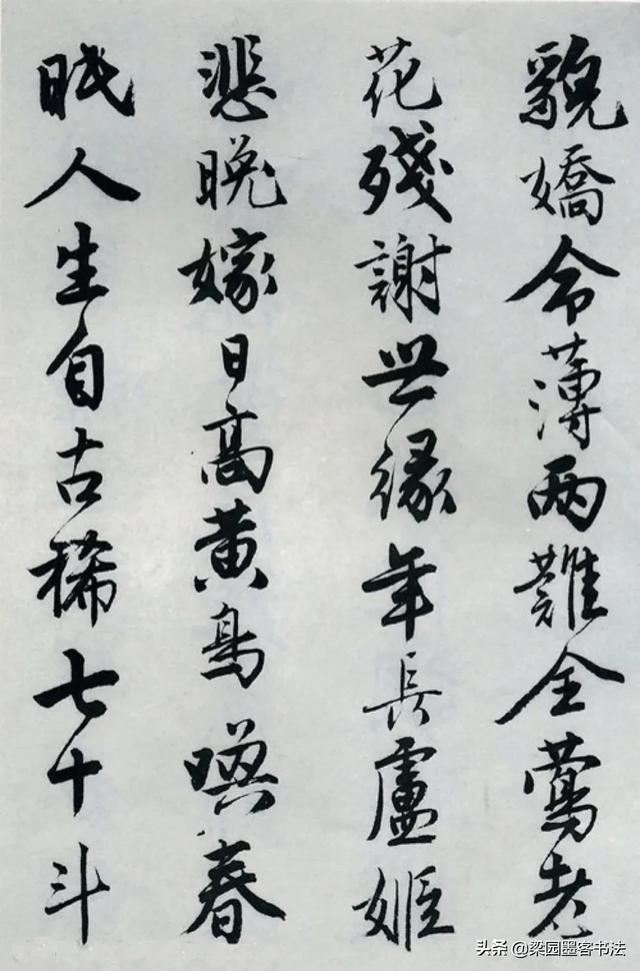 貌嬌命薄两難全鶯老
花殘謝世緣年長盧姬
悲晚嫁日高黄鳥喚春
眠人生自古稀七十斗
头条 @梁园墨客书法